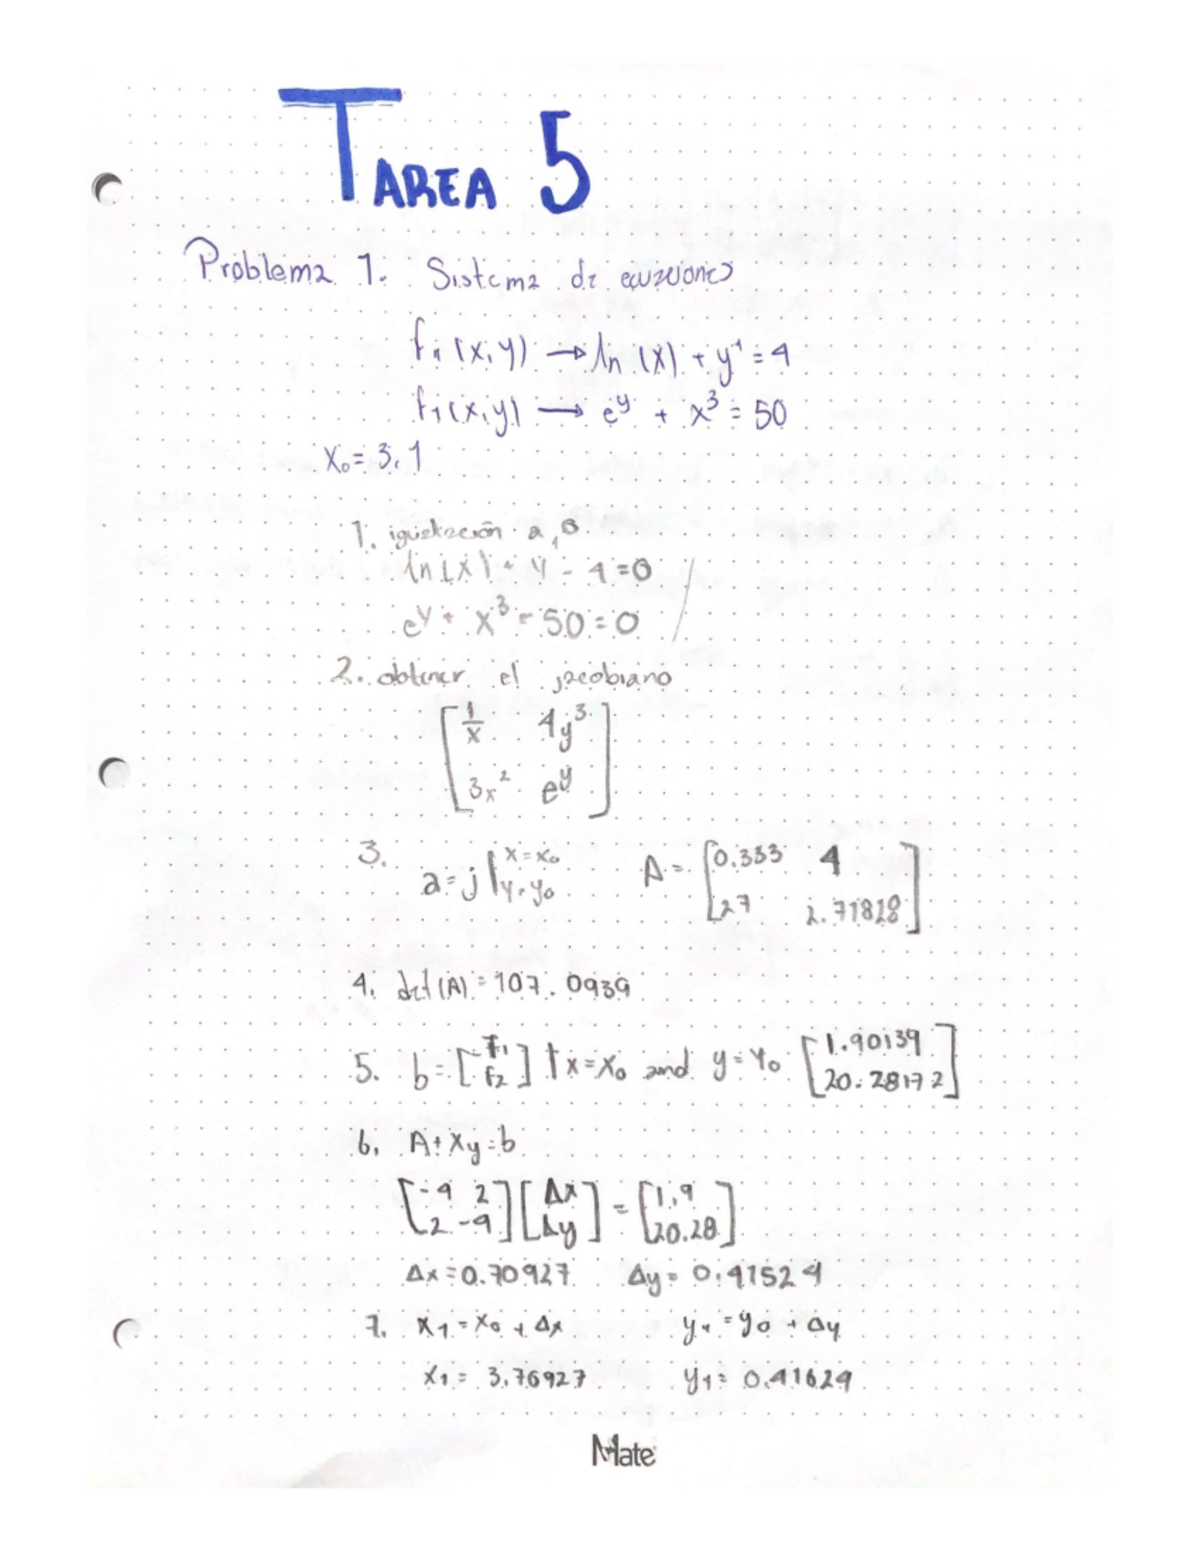 TAREA 5
Problema 1. Sistema de ecuaciones
f1 (x,y) → ln (x) + y⁴ = 4
f1(x,y) → e^y + x³ = 50
X₀ = 3,1
1. igualación a 0
ln(x) + y - 4 = 0
e^y + x³ - 50 = 0
2. obtener el jacobiano
[ 1/x 4y³
3x² e^y ]
3. a = j | x=x₀ y=y₀ A = [ 0.333 4
27 2.71828 ]
4. det(A) = 107.0939
5. b = [ -f1 f2 ] | x = x₀ and y = y₀ [ 1.90139
20.28172 ]
6. A + Xy = b
[ -4 2 2 -4 ] [ Δx Δy ] = [ 1.9 20.28 ]
Δx = 0.70927 Δy = 0.41524
7. x1 = x₀ + Δx y1 = y₀ + Δy
x1 = 3.76927 y1 = 0.41624
Mate